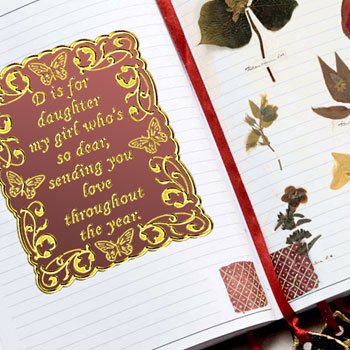 D is for
daughter
my girl who's
so dear,
sending you
love
throughout
the year.